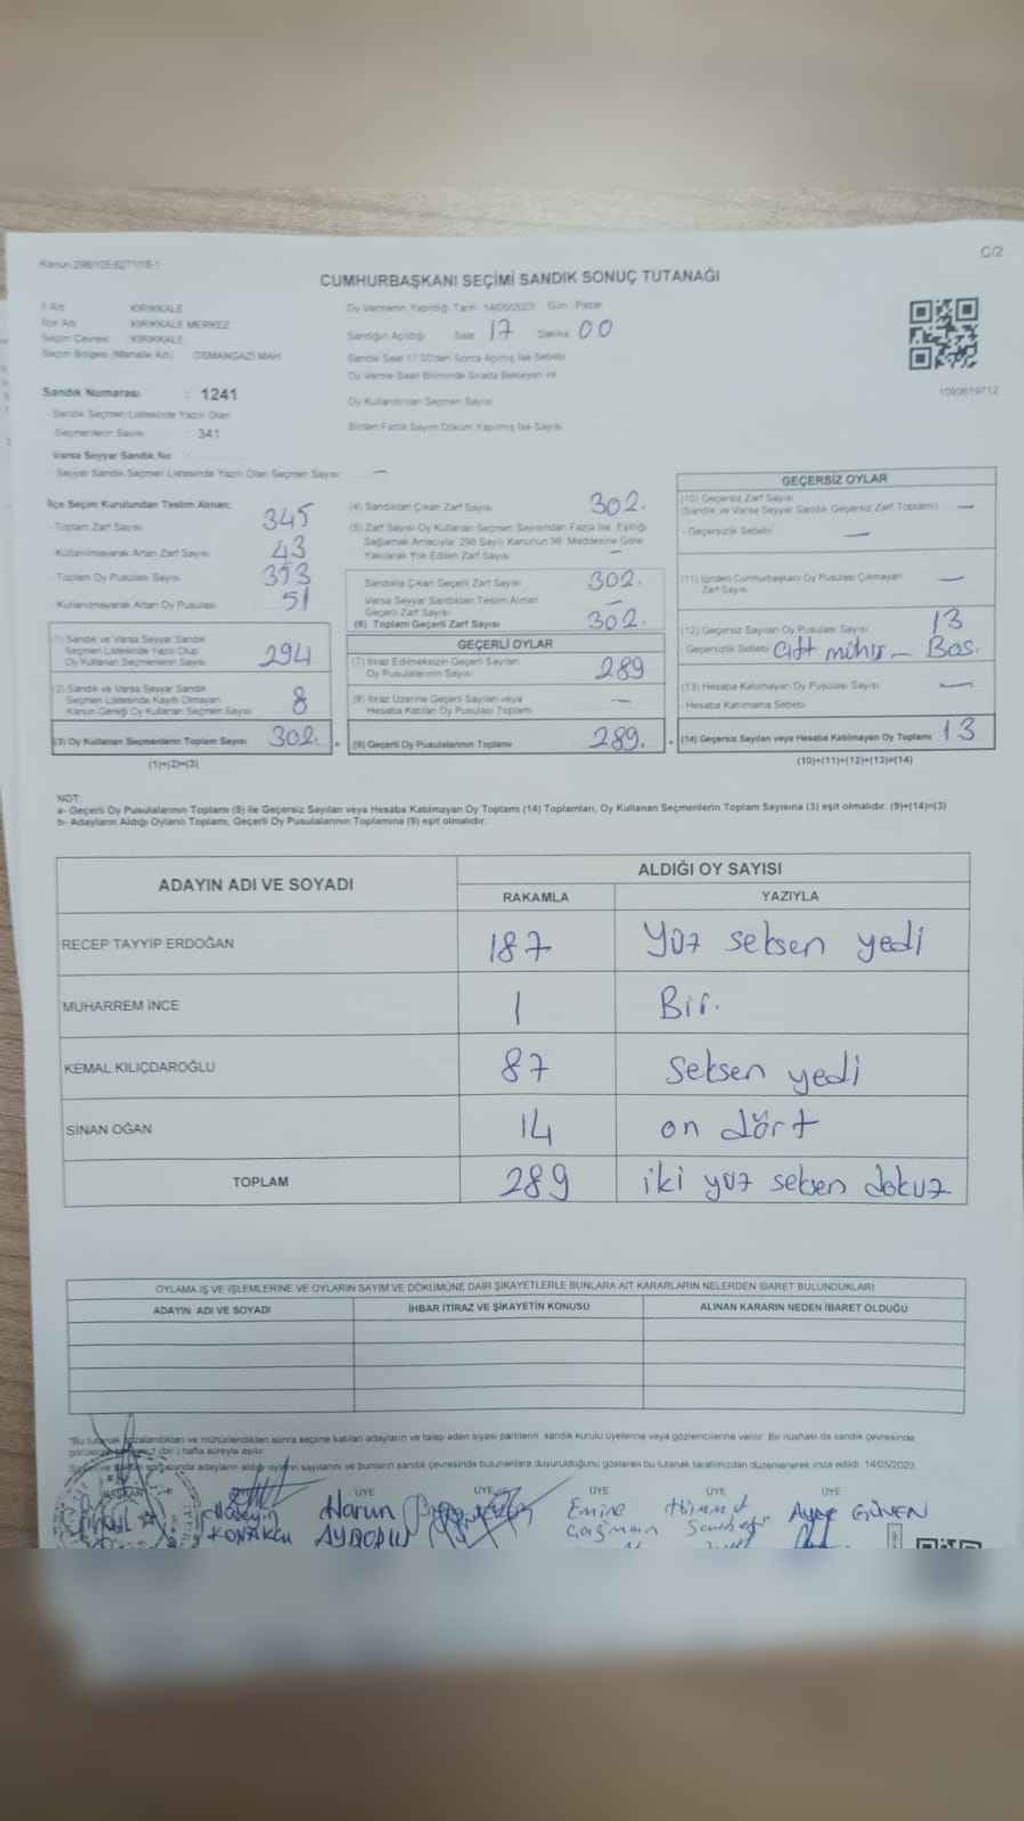 C/2
CUMHURBAŞKANI SEÇİMİ SANDIK SONUÇ TUTANAĞI
İl Adı KIRIKKALE
İlçe Adı KIRIKKALE MERKEZ
Seçim Çevresi KIRIKKALE
Seçim Bölgesi (Mahalle Adı) OSMANGAZİ MAH
Oy Vermenin Yapıldığı Tarih 14/05/2023 Gün: Pazar
Sandığın Açıldığı Saat 17 Dakika 00
Sandık Saat 17.00'den Sonra Açılmış İse Sebebi
Sandık Numarası : 1241
Sandık Seçmen Listesinde Yazılı Olan
Seçmenlerin Sayısı : 341
Oy Kullandırılan Seçmen Sayısı
Birden Fazla Sayım Döküm Yapılmış İse Sayısı
Varsa Seyyar Sandık No
Seyyar Sandık Seçmen Listesinde Yazılı Olan Seçmen Sayısı —
İlçe Seçim Kurulundan Teslim Alınan:
Toplam Zarf Sayısı 345
Kullanılmayarak Artan Zarf Sayısı 43
Toplam Oy Pusulası Sayısı 353
Kullanılmayarak Artan Oy Pusulası 51
(1) Sandık ve Varsa Seyyar Sandık
Seçmen Listesinde Yazılı Olup
Oy Kullanan Seçmenlerin Sayısı 294
(2) Sandık ve Varsa Seyyar Sandık
Seçmen Listesinde Kayıtlı Olmayan
Kanun Gereği Oy Kullanan Seçmen Sayısı 8
(3) Oy Kullanan Seçmenlerin Toplam Sayısı 302.
(1)+(2)=(3)
(4) Sandıktan Çıkan Zarf Sayısı 302.
(5) Zarf Sayısı Oy Kullanan Seçmen Sayısından Fazla İse, Eşitliği
Sağlamak Amacıyla; 298 Sayılı Kanunun 98. Maddesine Göre
Yakılarak Yok Edilen Zarf Sayısı —
Sandıkta Çıkan Geçerli Zarf Sayısı 302.
Varsa Seyyar Sandıktan Teslim Alınan
Geçerli Zarf Sayısı —
(6) Toplam Geçerli Zarf Sayısı 302.
GEÇERLİ OYLAR
(7) İtiraz Edilmeksizin Geçerli Sayılan
Oy Pusulalarının Sayısı 289
(8) İtiraz Üzerine Geçerli Sayılan veya
Hesaba Katılan Oy Pusulası Toplamı —
(9) Geçerli Oy Pusulalarının Toplamı 289.
GEÇERSİZ OYLAR
(10) Geçersiz Zarf Sayısı
(Sandık ve Varsa Seyyar Sandık Geçersiz Zarf Toplamı) —
Geçersizlik Sebebi —
(11) İçinden Cumhurbaşkanı Oy Pusulası Çıkmayan
Zarf Sayısı —
(12) Geçersiz Sayılan Oy Pusulası Sayısı 13
Geçersizlik Sebebi Çift mühür - Bos.
(13) Hesaba Katılmayan Oy Pusulası Sayısı —
Hesaba Katılmama Sebebi
(14) Geçersiz Sayılan veya Hesaba Katılmayan Oy Toplamı 13
(10)+(11)+(12)+(13)=(14)
NOT:
a- Geçerli Oy Pusulalarının Toplamı (9) ile Geçersiz Sayılan veya Hesaba Katılmayan Oy Toplamı (14) Toplamları, Oy Kullanan Seçmenlerin Toplam Sayısına (3) eşit olmalıdır. (9)+(14)=(3)
b- Adayların Aldığı Oyların Toplamı, Geçerli Oy Pusulalarının Toplamına (9) eşit olmalıdır.
ADAYIN ADI VE SOYADI ALDIĞI OY SAYISI
RAKAMLA YAZIYLA
RECEP TAYYİP ERDOĞAN 187 Yüz seksen yedi
MUHARREM İNCE 1 Bir.
KEMAL KILIÇDAROĞLU 87 Seksen yedi
SİNAN OĞAN 14 on dört
TOPLAM 289 iki yüz seksen dokuz
OYLAMA İŞ VE İŞLEMLERİNE VE OYLARIN SAYIM VE DÖKÜMÜNE DAİR ŞİKAYETLERLE BUNLARA AİT KARARLARIN NELERDEN İBARET BULUNDUKLARI
ADAYIN ADI VE SOYADI İHBAR İTİRAZ VE ŞİKAYETİN KONUSU ALINAN KARARIN NEDEN İBARET OLDUĞU
ve mühürlendikten sonra seçime katılan adayların ve talep eden siyasi partilerin sandık kurulu üyelerine veya gözlemcilerine verilir. Bir nüshası da sandık çevresinde
hafta süreyle asılır.
adayların aldığı oyların sayılarını ve bunların sandık çevresinde bulunanlara duyurulduğunu gösteren bu tutanak tarafımızdan düzenlenerek imza edildi. 14/05/2023
BAŞKAN ÜYE ÜYE ÜYE ÜYE ÜYE
Harun Emine Ayşe GÜVEN